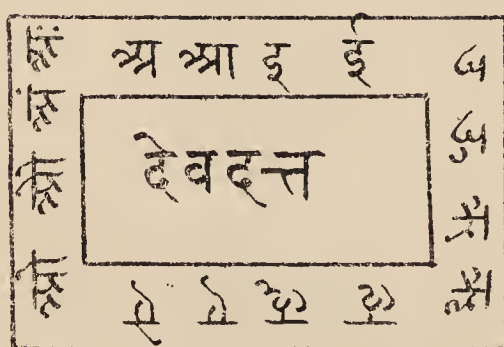 अ आ इ ई
उ ऊ ऋ ॠ
ऌ ॡ ए ऐ
ओ औ अं अः
देवदत्त